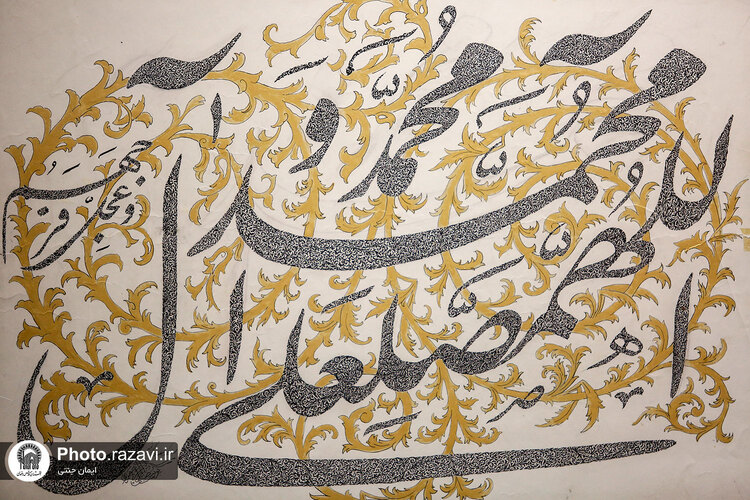 اللهم صل علی محمد وآل محمد
وعجل فرجهم
Photo.razavi.ir
ایمان جنتی